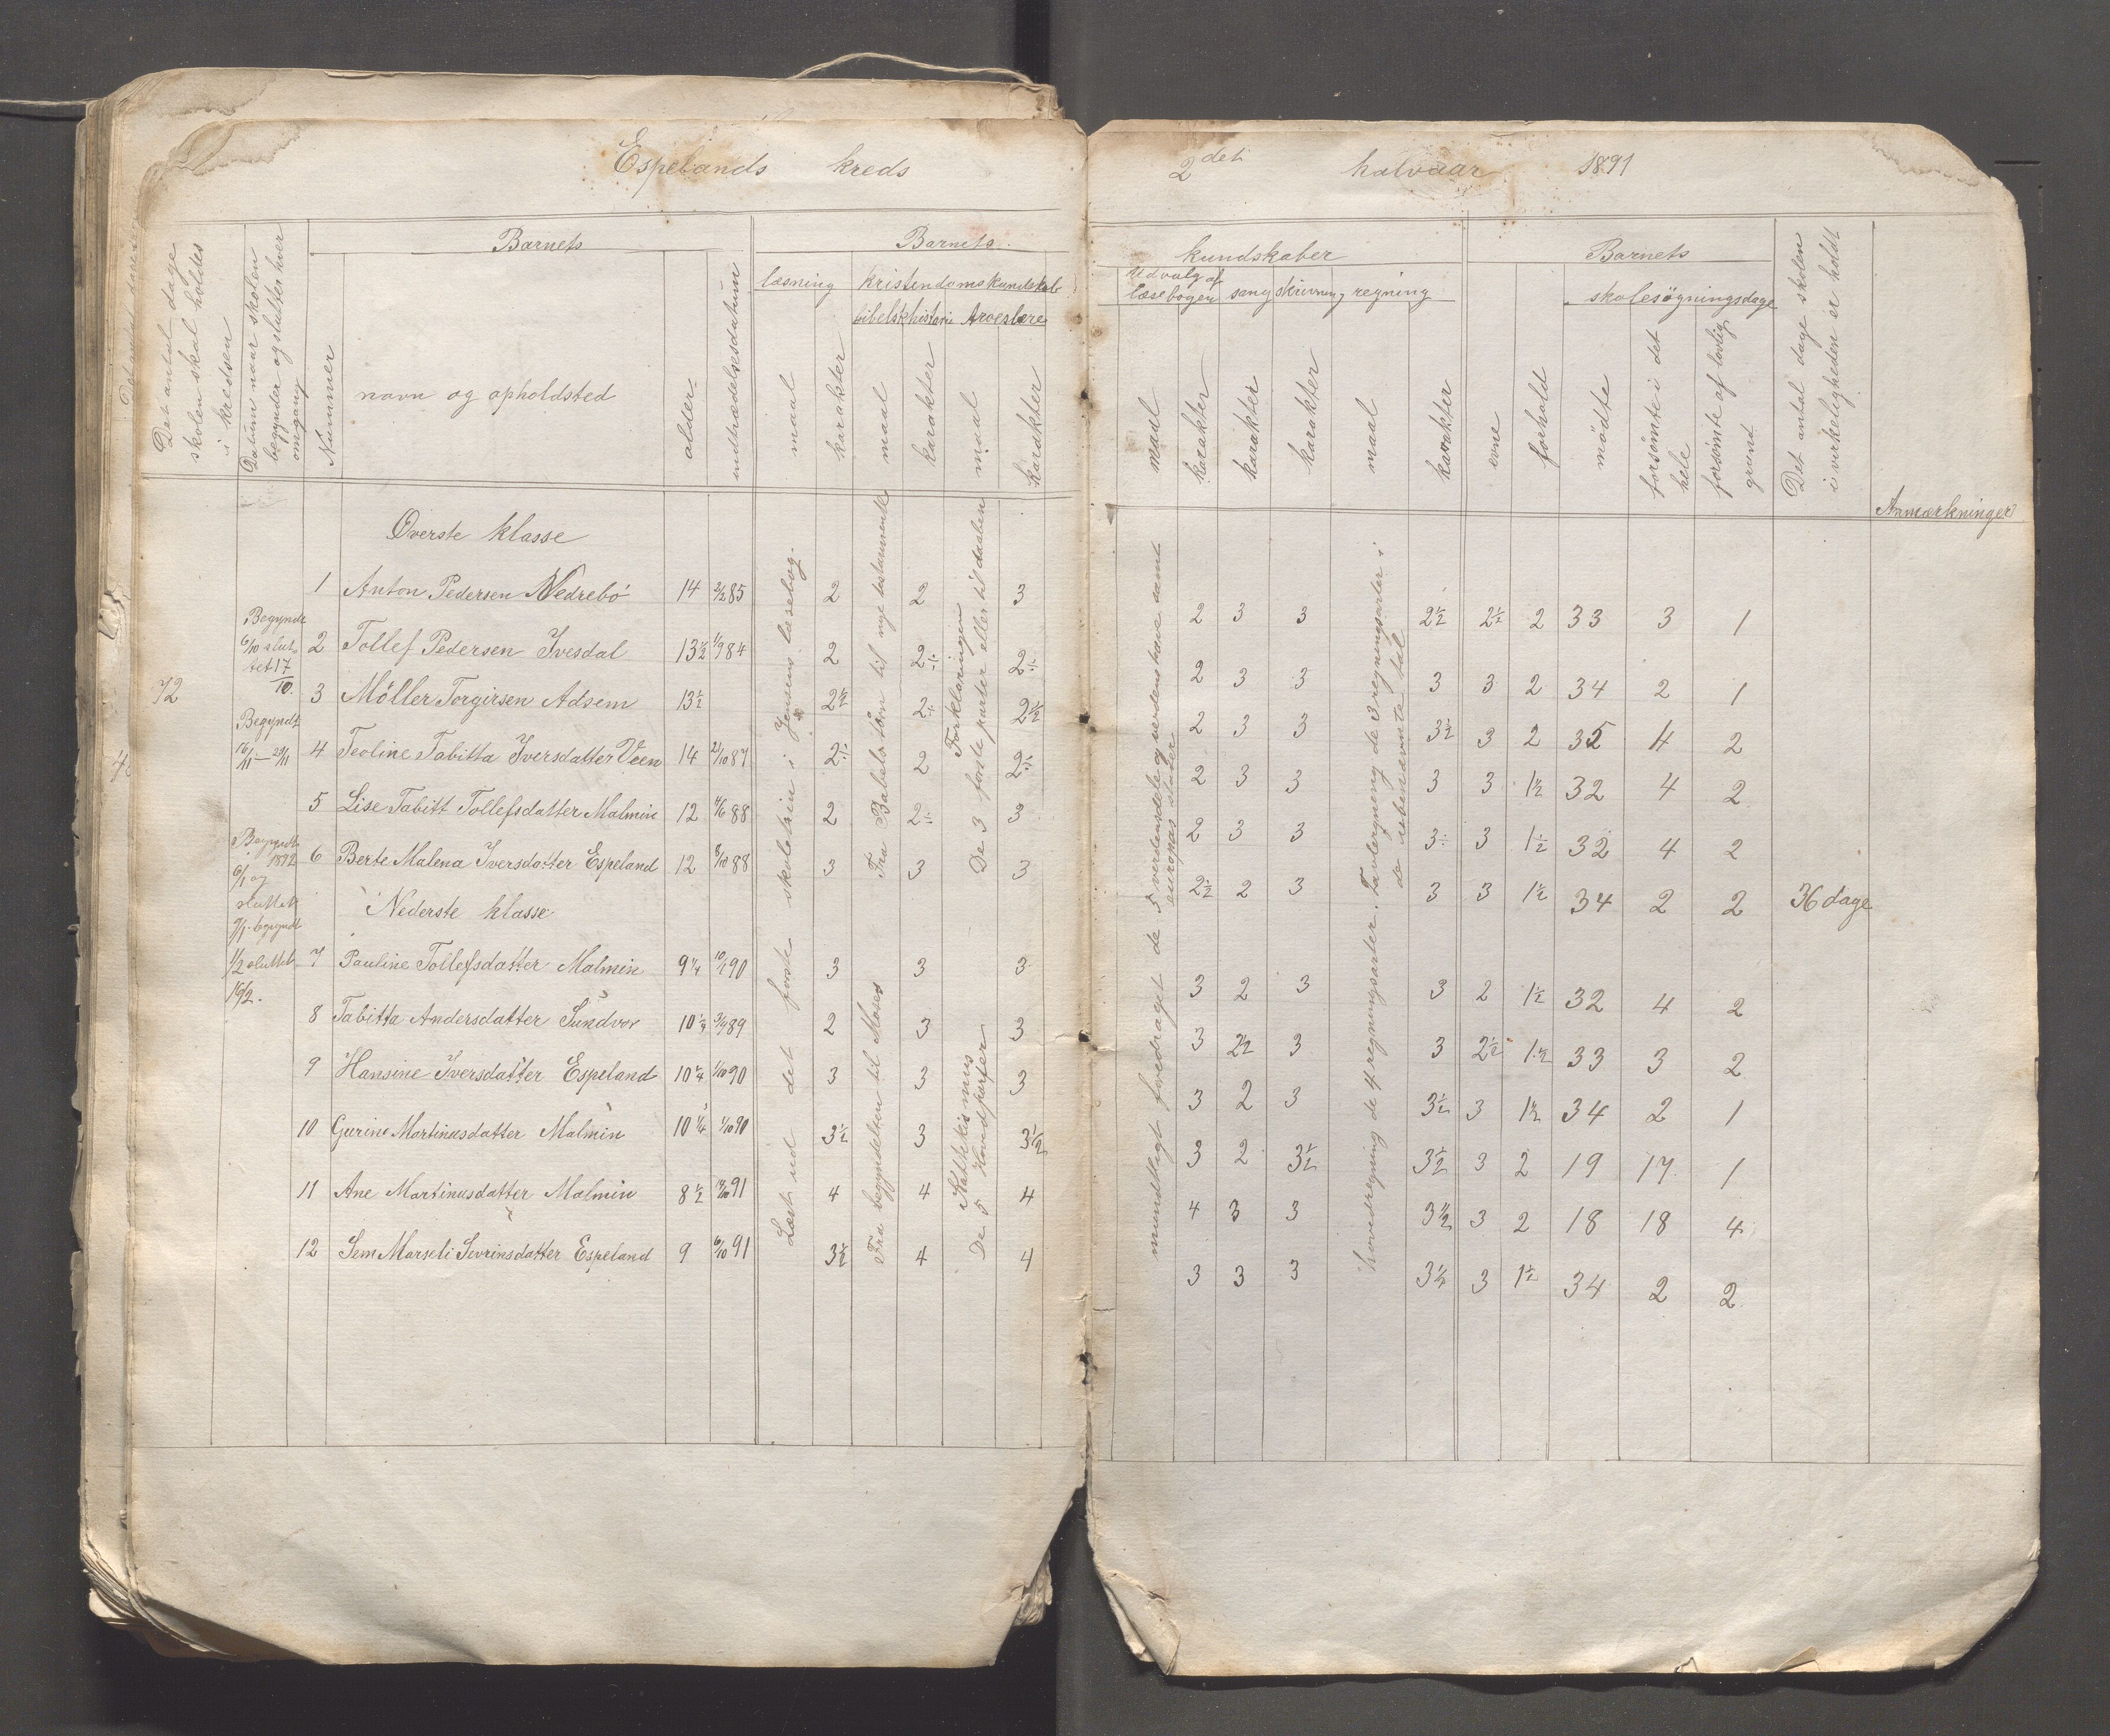 Espelands kreds
Det antal dage skolen skal holdes i kredsen
Datum naar skolen begynder og slutter hver omgang
Nummer
Barnets
navn og opholdsted
alder
indtrædelsesdatum
Barnets
læsning
kristendomskundskab
bibelskhistorie Troeslære
maal
karakter
maal
karakter
maal
karakter
Øverste klasse
1 Anton Pedersen Nedrebö 14 2/2 85 2 2 3
2 Tollef Pedersen Ivesdal 13½ 1/9 84 2 2÷ 2÷
3 Möller Torgirsen Adsem 13½ 2½ 2÷ 2½
4 Teoline Tabitta Iversdatter Veen 14 21/10 87 2÷ 2 2÷
5 Lise Tabitt Tollefsdatter Malmin 12 4/6 88 2 2÷ 3
6 Berte Malena Iversdatter Espeland 12 8/10 88 3 3 3
Nederste klasse
7 Pauline Tollefsdatter Malmin 9¼ 10/1 90 3 3 3
8 Tabitta Andersdatter Sundvor 2 3 3
9 Hansine Iversdatter Espeland 10¼ 1/10 90 3 3 3
10 Gurine Martinusdatter Malmin 10¼ 1/10 90 3½ 3 3½
11 Ane Martinusdatter Malmin 8½ 4 4 4
12 Sem Marseli Sevrinsdatter Espeland 9 6/10 91 3½ 4 4
72
Begyndt
6/10 slut-
tet 17/10.
Begyndt
16/11 — 29/11
Begyndt
i 1892
6/1 og
sluttet
9/1. begyndt
1/2 sluttet
16/2.
Læst ud det förste skoletrin i Jensens læsebog.
Fra Babelstårn til nye testamente
Fra begyndelsen til Moses
Forklaringen
De 3 förste parter eller til daaben
Katekismus
De 5 Hovedparter
2det halvaar 1891
kundskaber
Udvalg af læsebogen
sang
skrivning
regning
maal
karakter
karakter
karakter
maal
karakter
Barnets
evne
forhold
skolesögningsdage
mödte
forsömte i det hele
forsömte af lovlig grund
Det antal dage skolen i virkeligheden er holdt
Anmærkninger
2 3 3 2½ 2½ 2 33 3 1
2 3 3 3 3 2 34 2 1
2 3 3 3½ 3 2 35 4 2
2 3 3 3 3 1½ 32 4 2
2 3 3 3÷ 3 1½ 32 4 2
2½ 2 3 3 3 1½ 34 2 2 36 dage
3 2 3 3 2 1½ 32 4 2
3 2½ 3 3 2½ 1½ 33 3 2
3 2 3 3½ 3 1½ 34 2 1
3 2 3½ 3½ 3 2 19 17 1
4 3 3 3½ 3 2 18 18 4
3 3 3 3½ 3 1½ 34 2 2
mundtligt foredraget de 5 verdensdele og verdenshave samt europas stater
hovedregning de 4 regningsarter. Tavleregneng de 3 regningsarter i de ubenævnte tal